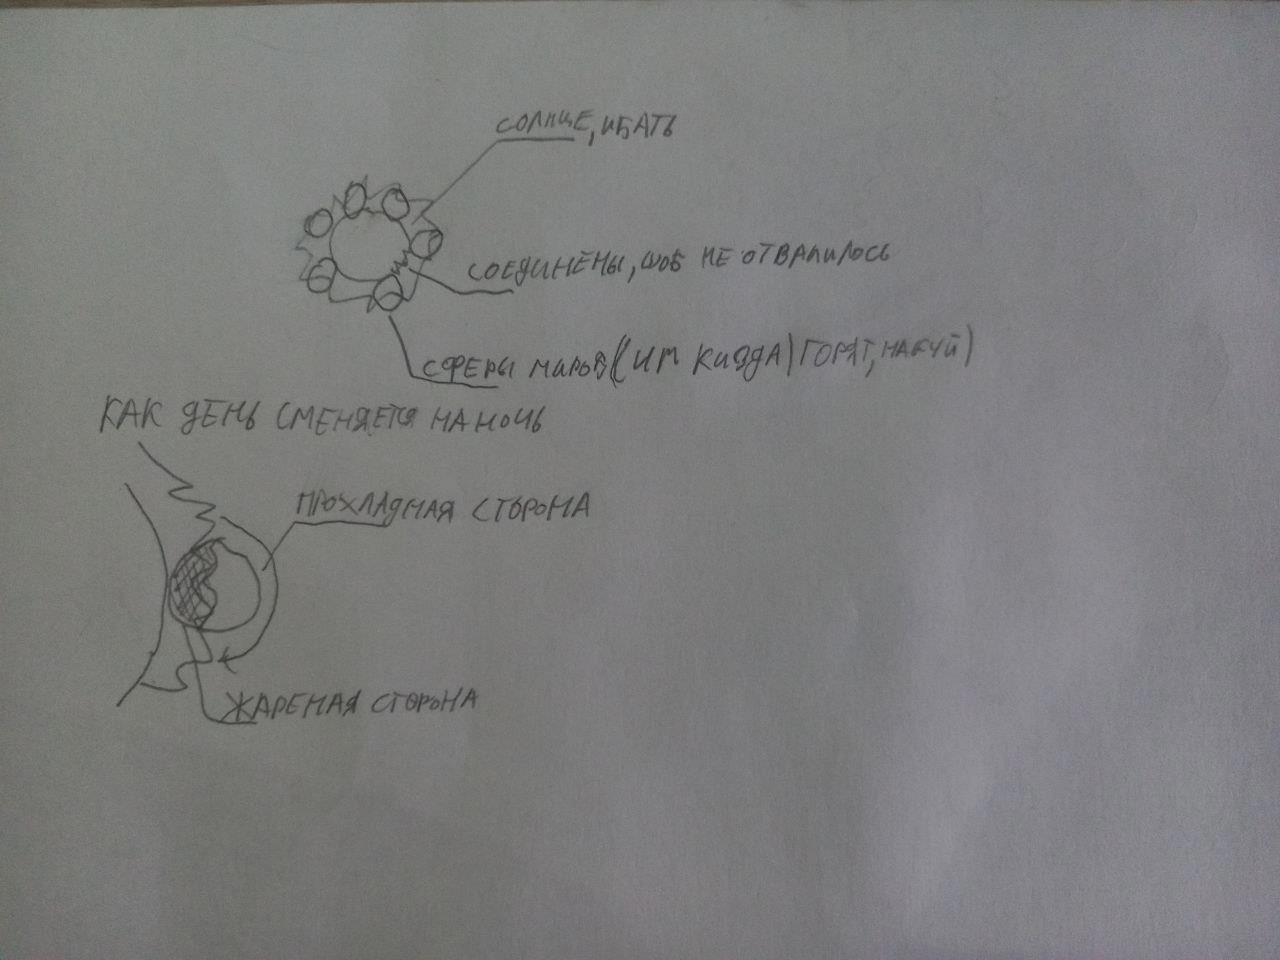 СОЛНЦЕ, ИБАТЬ
СОЕДИНЕНЫ, ШОБ НЕ ОТВАЛИЛОСЬ
СФЕРЫ МИРОВ (ИМ КИЗДА) ГОРЯТ, НАКУЙ)
КАК ДЕНЬ СМЕНЯЕТСЯ НА НОЧЬ
ПРОХЛАДНАЯ СТОРОНА
ЖАРЕНАЯ СТОРОНА